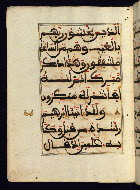 الذين يخشون ربهم
بالغيب وهم من الساعة
مشفقون وهذا
ذكر مبرك انزلنه
افانتم له منكرون
ولقد اتينا ابرهيم
رشده من قبل وكنا
به علمين اذ قال